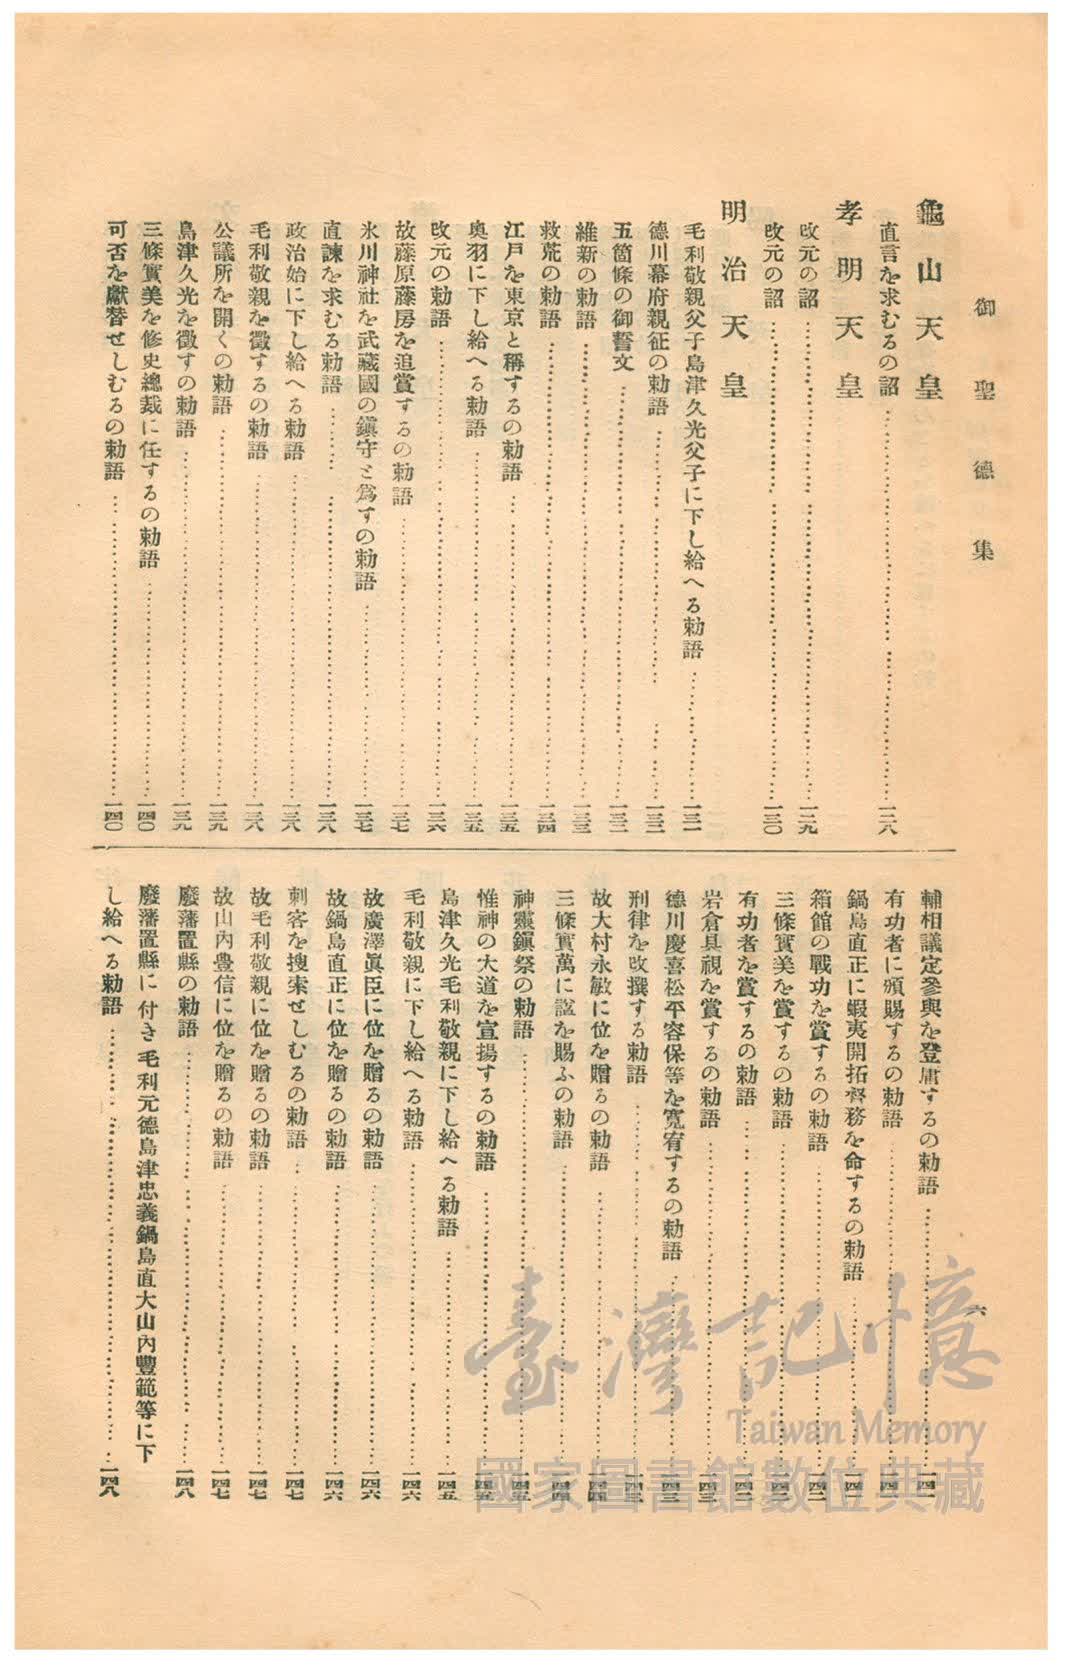 御聖德集
龜山天皇
直言を求むるの詔……一二八
孝明天皇
改元の詔……一二九
改元の詔……一三〇
明治天皇
毛利敬親父子島津久光父子に下し給へる勅語……一三一
德川幕府親征の勅語……一三二
五箇條の御誓文……一三二
維新の勅語……一三三
救荒の勅語……一三四
江戸を東京と稱するの勅語……一三五
奥羽に下し給へる勅語……一三五
改元の勅語……一三六
故藤原藤房を追賞するの勅語……一三七
氷川神社を武藏國の鎭守と爲すの勅語……一三七
直諫を求むる勅語……一三八
政治始に下し給へる勅語……一三八
毛利敬親を徵するの勅語……一三八
公議所を開くの勅語……一三九
島津久光を徵すの勅語……一三九
三條實美を修史總裁に任するの勅語……一四〇
可否を獻替せしむるの勅語……一四〇
輔相議定參與を登庸するの勅語……一四一
有功者に頒賜するの勅語……一四一
鍋島直正に蝦夷開拓督務を命するの勅語……一四二
箱館の戰功を賞するの勅語……一四二
三條實美を賞するの勅語……一四二
有功者を賞するの勅語……一四二
岩倉具視を賞するの勅語……一四三
德川慶喜松平容保等を寬宥するの勅語……一四三
刑律を改撰する勅語……一四三
故大村永敏に位を贈るの勅語……一四四
三條實萬に諡を賜ふの勅語……一四四
神靈鎭祭の勅語……一四五
惟神の大道を宣揚するの勅語……一四五
島津久光毛利敬親に下し給へる勅語……一四五
毛利敬親に下し給へる勅語……一四六
故廣澤眞臣に位を贈るの勅語……一四六
故鍋島直正に位を贈るの勅語……一四六
刺客を搜索せしむるの勅語……一四七
故毛利敬親に位を贈るの勅語……一四七
故山内豊信に位を贈るの勅語……一四七
廢藩置縣の勅語……一四八
廢藩置縣に付き毛利元德島津忠義鍋島直大山內豐範等に下
し給へる勅語……一四八
六
臺灣記憶
Taiwan Memory
國家圖書館數位典藏